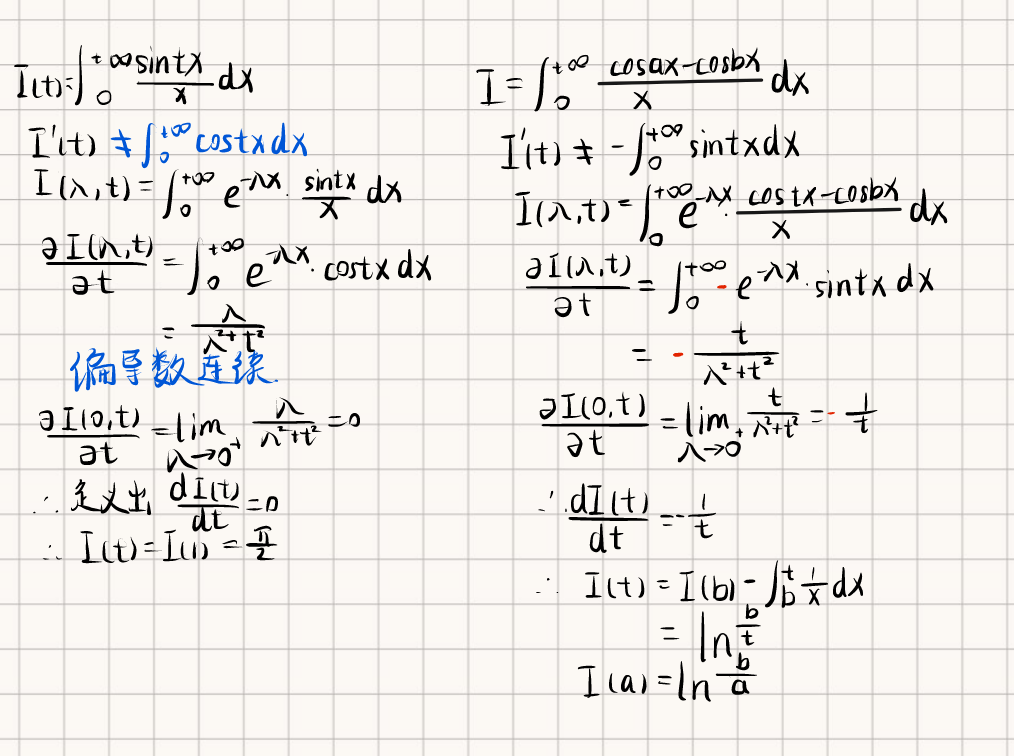 I(t)=∫₀^{+∞} \frac{sintx}{x} dx
I'(t) ≠ ∫₀^{+∞} costxdx
I(λ,t) = ∫₀^{+∞} e^{-λx}·\frac{sintx}{x} dx
\frac{∂I(λ,t)}{∂t} = ∫₀^{+∞} e^{-λx}·costxdx
= \frac{λ}{λ²+t²}
偏导数连续.
\frac{∂I(0,t)}{∂t} = lim_{λ→0⁺} \frac{λ}{λ²+t²} = 0
∴ 定义出 \frac{dI(t)}{dt} = 0
∴ I(t) = I(1) = \frac{π}{2}
I = ∫₀^{+∞} \frac{cosax-cosbx}{x} dx
I'(t) ≠ -∫₀^{+∞} sintxdx
I(λ,t) = ∫₀^{+∞} e^{-λx}·\frac{costx-cosbx}{x} dx
\frac{∂I(λ,t)}{∂t} = ∫₀^{+∞} -e^{-λx}·sintxdx
= -\frac{t}{λ²+t²}
\frac{∂I(0,t)}{∂t} = lim_{λ→0⁺} \frac{t}{λ²+t²} = -\frac{1}{t}
∴ \frac{dI(t)}{dt} = -\frac{1}{t}
∴ I(t) = I(b) - ∫_b^t \frac{1}{x} dx
= ln\frac{b}{t}
I(a) = ln\frac{b}{a}